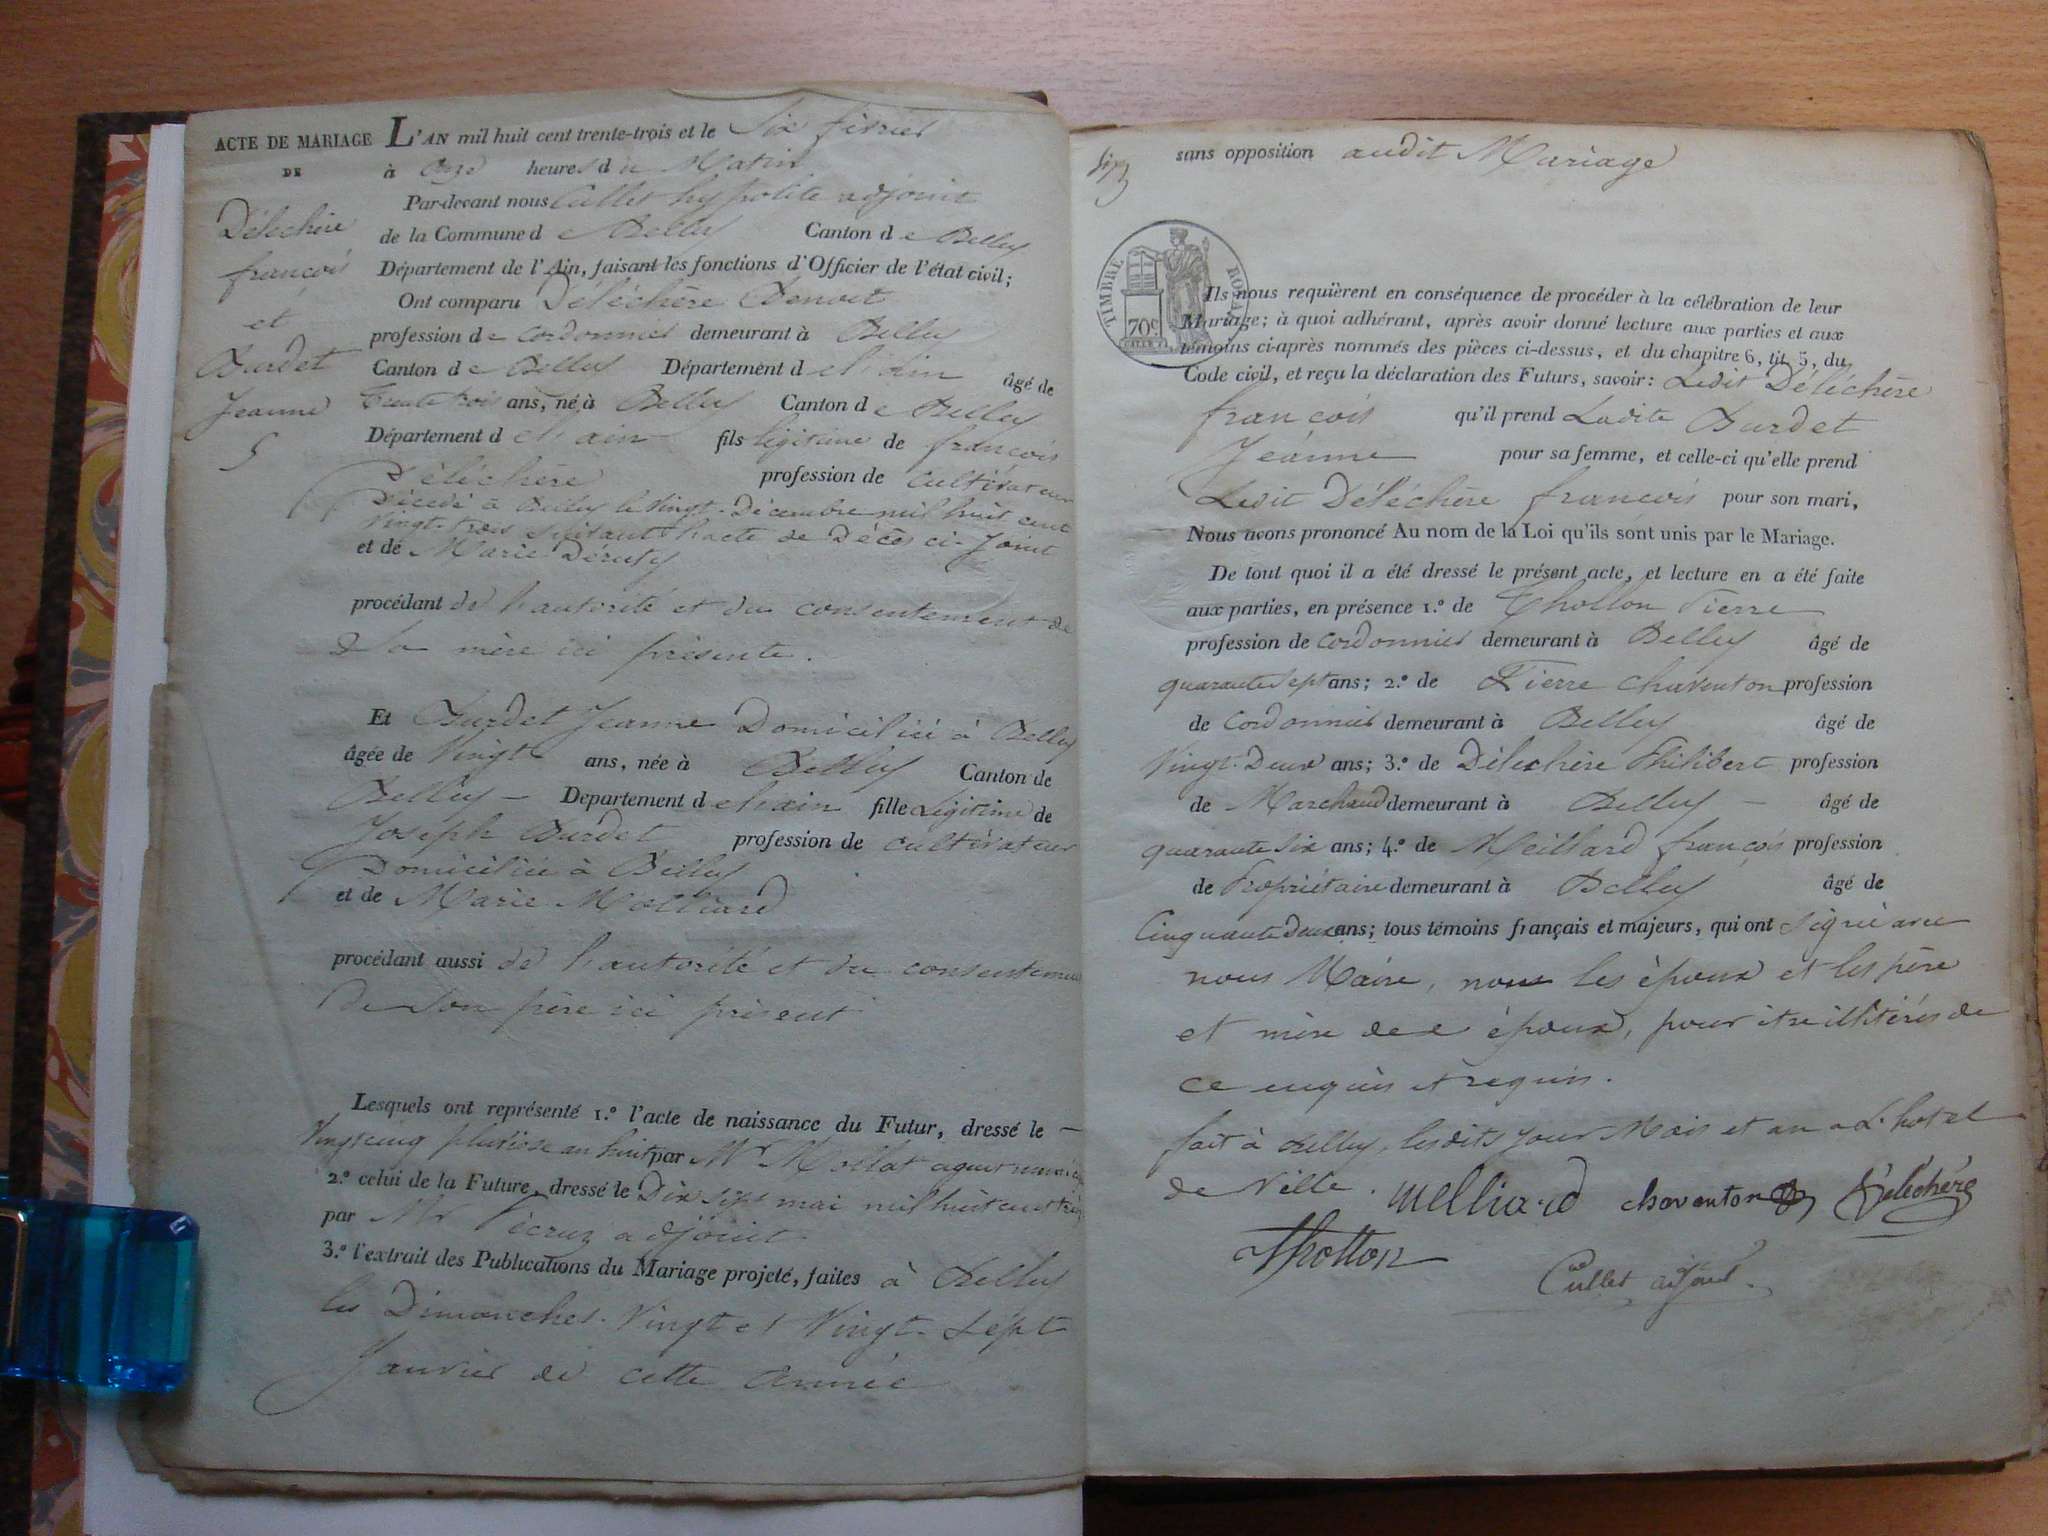 ACTE DE MARIAGE
DE
Déléchère
françois
et
Burdet
Jeanne
5
L'AN mil huit cent trente-trois et le Six février
à Onze heures du Matin
Par-devant nous Cullet hypolite adjoint
de la Commune de Belley Canton de Belley
Département de l'Ain, faisant les fonctions d'Officier de l'état civil;
Ont comparu Déléchère Benoit
profession de Cordonnier demeurant à Belley
Canton de Belley Département de l'ain âgé de
Trente trois ans, né à Belley Canton de Belley
Département de l'ain fils légitime de françois
Déléchère profession de Cultivateur
Décédé à Belley le Vingt-Décembre mil huit cent
Vingt-trois suivant l'acte de Décès ci-Joint
et de Marie Deruty
procédant de l'autorité et du consentement de
Sa mère ici présente.
Et Burdet Jeanne Domiciliée à Belley
âgée de Vingt ans, née à Belley Canton de
Belley - Departement de l'ain fille Légitime de
Joseph Burdet profession de Cultivateur
Domicilié à Belley
et de Marie Melliard
procédant aussi de l'autorité et du consentement
de son père ici présent
Lesquels ont représenté 1.º l'acte de naissance du Futur, dressé le -
Vingt cinq pluviose an huit par Mr Mollat agent
2.º celui de la Future, dressé le Dix sept mai mil huit cent
par Mr adjoint
3.º l'extrait des Publications du Mariage projeté, faites à Belley
les Dimanches Vingt et Vingt-Sept
Janvier de cette Année
sans opposition audit Mariage
TIMBRE ROYAL
70 c.
Ils nous requièrent en conséquence de procéder à la célébration de leur
Mariage; à quoi adhérant, après avoir donné lecture aux parties et aux
témoins ci-après nommés des pièces ci-dessus, et du chapitre 6, tit. 5, du
Code civil, et reçu la déclaration des Futurs, savoir: Ledit Déléchère
françois qu'il prend Ladite Burdet
Jeanne pour sa femme, et celle-ci qu'elle prend
Ledit Déléchère françois pour son mari,
Nous avons prononcé Au nom de la Loi qu'ils sont unis par le Mariage.
De tout quoi il a été dressé le présent acte, et lecture en a été faite
aux parties, en présence 1.º de Thollon Pierre
profession de Cordonnier demeurant à Belley âgé de
quarante Sept ans; 2.º de Pierre Chaventon profession
de Cordonnier demeurant à Belley âgé de
Vingt-Deux ans; 3.º de Déléchère Philibert profession
de Marchand demeurant à Belley - âgé de
quarante Six ans; 4.º de Meilliard françois profession
de Propriétaire demeurant à Belley âgé de
Cinquante Deux ans; tous témoins français et majeurs, qui ont signé avec
nous Maire, non les époux et les père
et mère des époux, pour être illitérés de
ce enquis et requis.
fait à Belley, lesdits jour Mois et an a L'hotel
de Ville. melliard chaventon Déléchère
Thollon
Cullet adjoint.